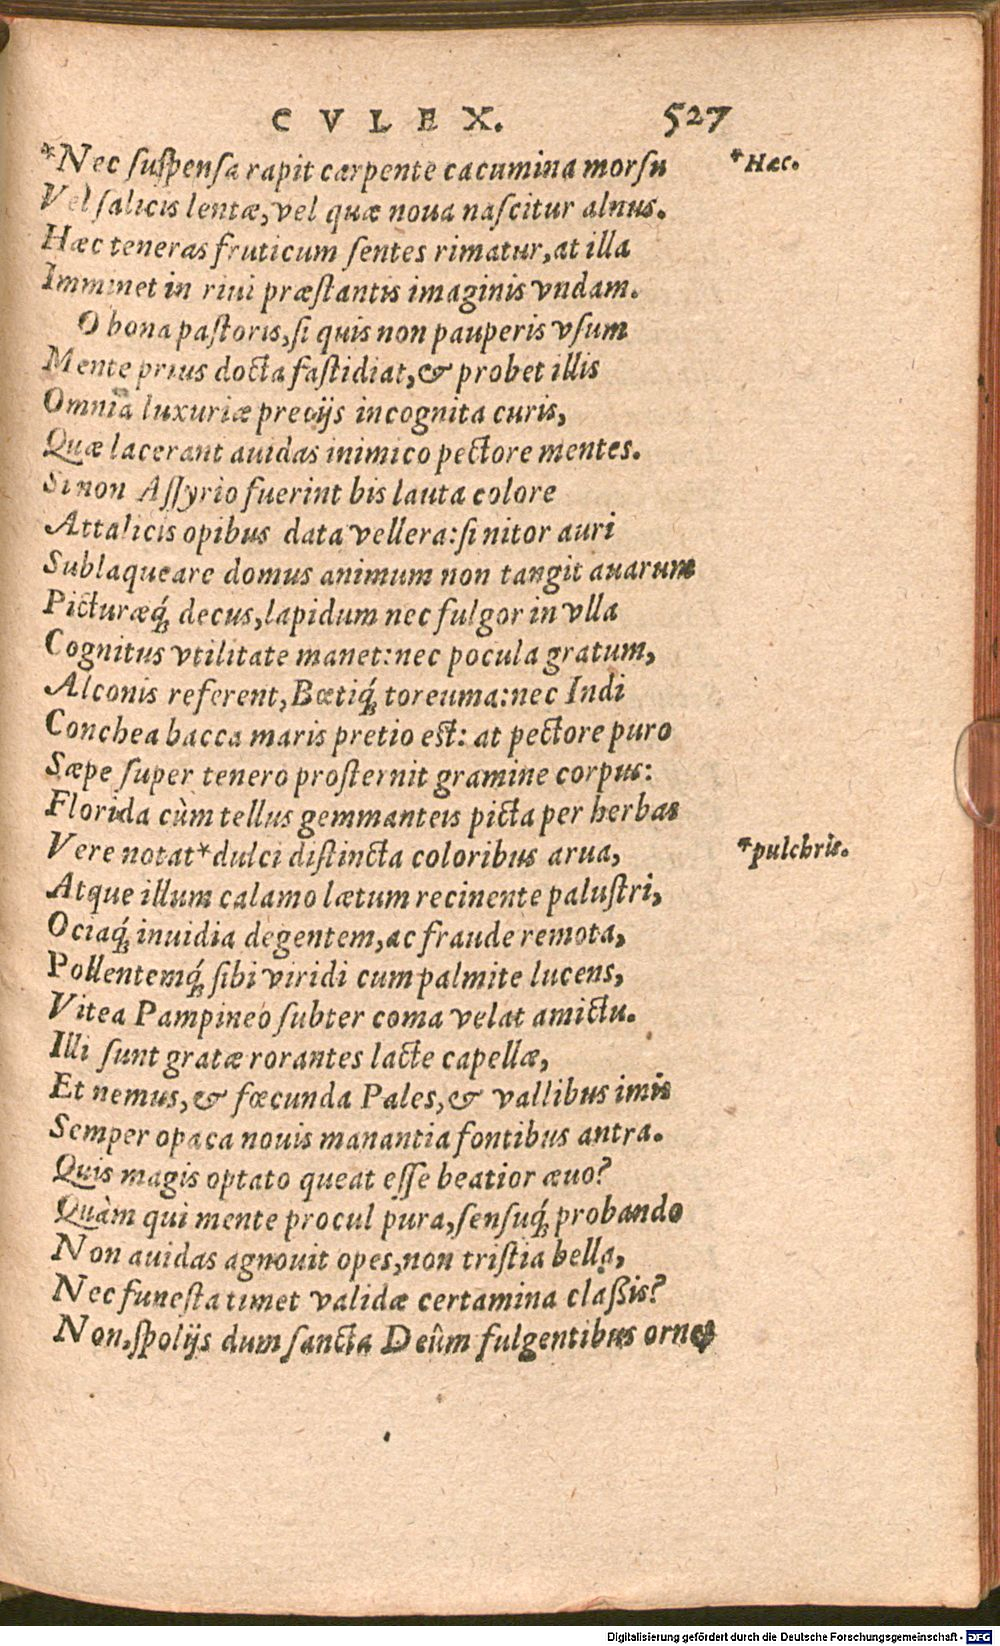 CVLEX. 527
*Nec ſuſpenſa rapit cærpente cacumina morſu *Hæc.
Vel ſalicis lentæ, vel quæ noua naſcitur alnus.
Hæc teneras fruticum ſentes rimatur, at illa
Imminet in riui præſtantis imaginis vndam.
O bona paſtoris, ſi quis non pauperis vſum
Mente prius docta faſtidiat, & probet illis
Omnia luxuriæ precijs incognita curis,
Quæ lacerant auidas inimico pectore mentes.
Si non Aſſyrio fuerint bis lauta colore
Attalicis opibus data vellera: ſi nitor auri
Sub laqueare domus animum non tangit auarum
Picturæq́; decus, lapidum nec fulgor in vlla
Cognitus vtilitate manet: nec pocula gratum,
Alconis referent, Bœtiq́; toreuma: nec Indi
Conchea bacca maris pretio eſt: at pectore puro
Sæpe ſuper tenero proſternit gramine corpus:
Florida cùm tellus gemmanteis picta per herbas
Vere notat *dulci diſtincta coloribus arua, *pulchris.
Atque illum calamo lætum recinente paluſtri,
Ociaq́; inuidia degentem, ac fraude remota,
Pollentemq́; ſibi viridi cum palmite lucens,
Vitea Pampineo ſubter coma velat amictu.
Illi ſunt gratæ rorantes lacte capellæ,
Et nemus, & fœcunda Pales, & vallibus imis
Semper opaca nouis manantia fontibus antra.
Quis magis optato queat eſſe beatior æuo?
Quàm qui mente procul pura, ſenſuq́; probando
Non auidas agnouit opes, non triſtia bella,
Nec funeſta timet validæ certamina claßis?
Non, ſpolijs dum ſancta Deûm fulgentibus ornet
Digitalisierung gefördert durch die Deutsche Forschungsgemeinschaft - DFG